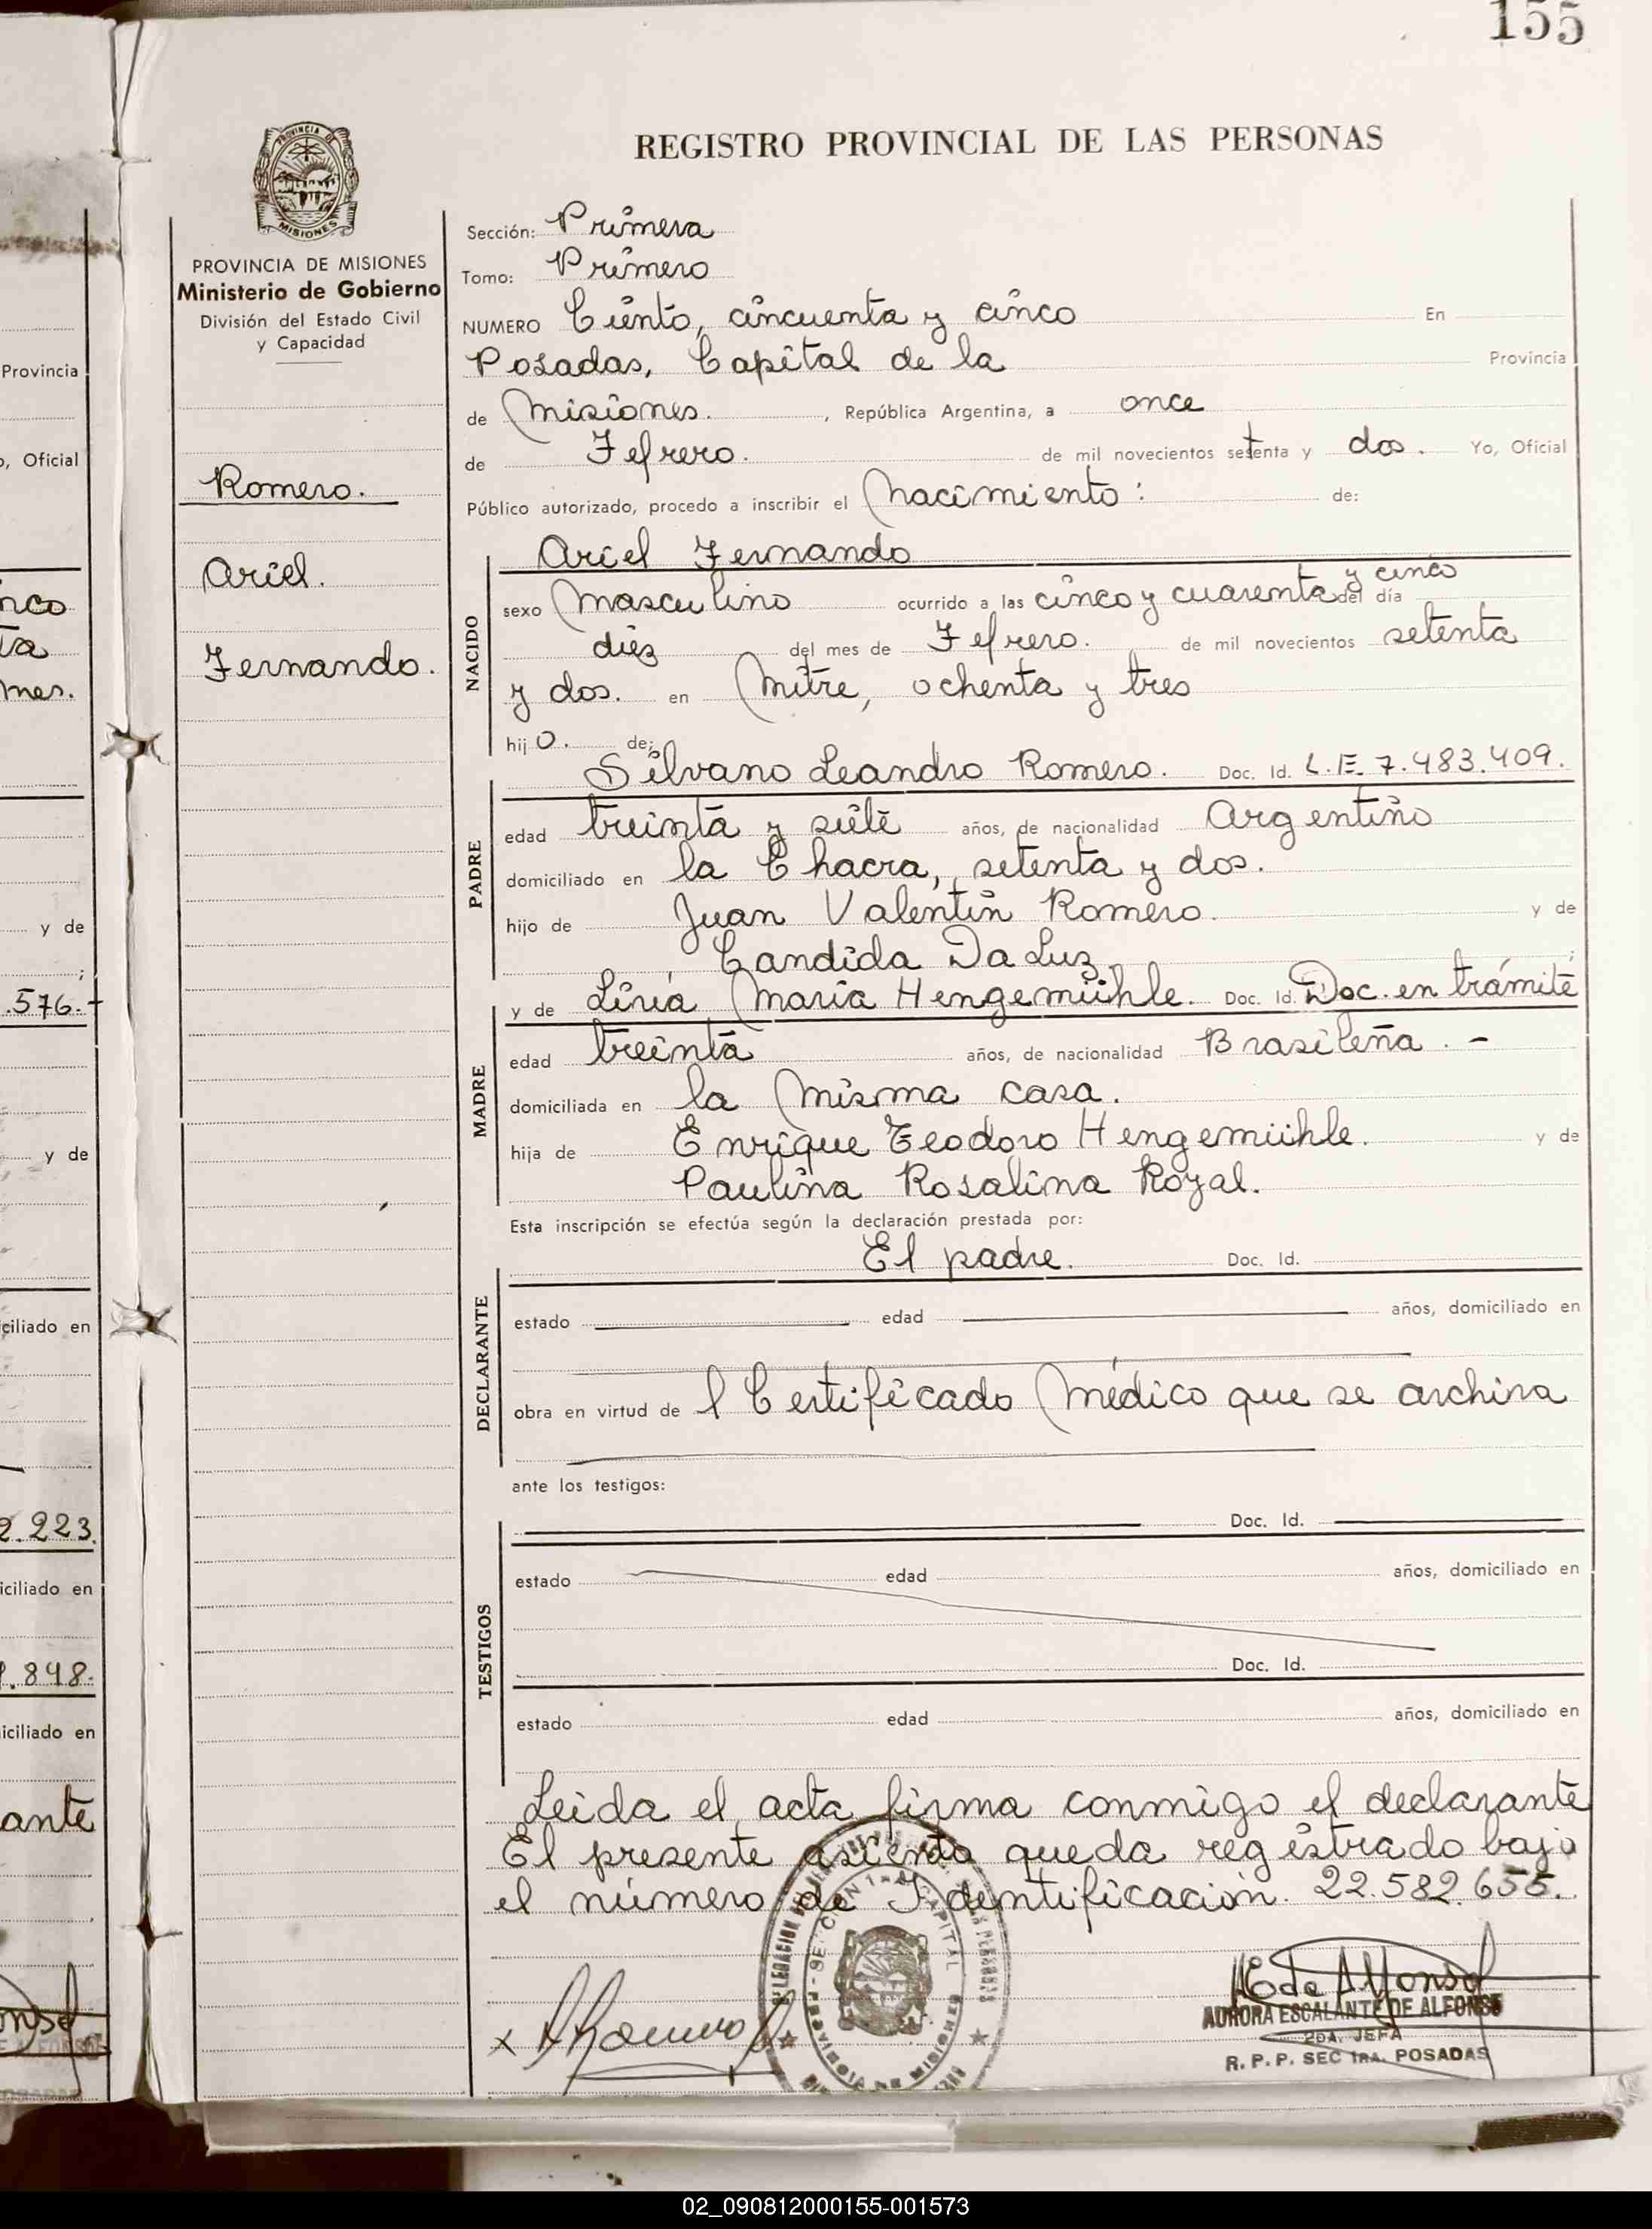 155
REGISTRO PROVINCIAL DE LAS PERSONAS
PROVINCIA DE
MISIONES
PROVINCIA DE MISIONES
Ministerio de Gobierno
División del Estado Civil
y Capacidad
Romero.
Ariel.
Fernando.
Sección: Primera
Tomo: Primero
NUMERO Ciento, cincuenta y cinco En
Posadas, Capital de la Provincia
de Misiones. , República Argentina, a once
de Febrero. de mil novecientos setenta y dos. Yo, Oficial
Público autorizado, procedo a inscribir el Nacimiento: de:
Ariel Fernando
NACIDO
sexo Masculino ocurrido a las cinco y cuarenta y cinco del día
diez del mes de Febrero. de mil novecientos setenta
y dos. en Mitre, ochenta y tres
hijo. de:
Silvano Leandro Romero. Doc. Id. L.E. 7.483.409.
PADRE
edad treinta y siete años, de nacionalidad Argentino
domiciliado en la Chacra, setenta y dos.
hijo de Juan Valentín Romero. y de
Candida Da Luz. ;
y de Liria María Hengemühle. Doc. Id. Doc. en trámite
MADRE
edad treinta años, de nacionalidad Brasileña. -
domiciliada en la misma casa.
hija de Enrique Teodoro Hengemühle. y de
Paulina Rosalina Royal.
Esta inscripción se efectúa según la declaración prestada por:
El padre. Doc. Id.
DECLARANTE
estado edad años, domiciliado en
obra en virtud de l Certificado Médico que se archiva
ante los testigos:
Doc. Id.
TESTIGOS
estado edad años, domiciliado en
Doc. Id.
estado edad años, domiciliado en
Leida el acta firma conmigo el declarante
El presente asiento queda registrado bajo
el número de Identificación. 22.582.655.
SECCION 1ra. CAPITAL
PROVINCIA DE MISIONES
AURORA ESCALANTE DE ALFONSO
2DA. JEFA
R. P. P. SEC 1RA. POSADAS
Provincia
, Oficial
mes.
y de
;
.576.-
y de
ciliado en
2.223.
iciliado en
.848.
iciliado en
ante
02_090812000155-001573